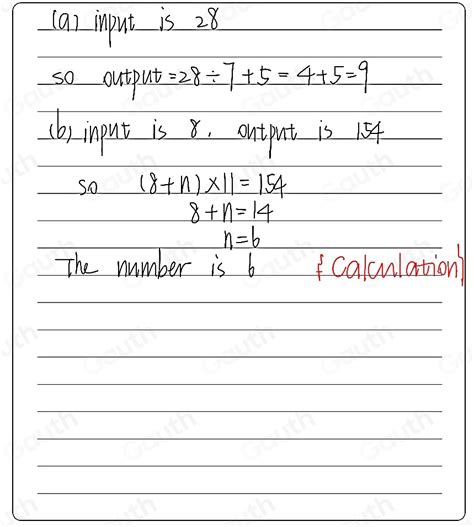 (a) input is 28
so output = 28 ÷ 7 + 5 = 4 + 5 = 9
(b) input is 8, output is 154
so (8 + n) × 11 = 154
8 + n = 14
n = 6
The number is 6 {Calculation}